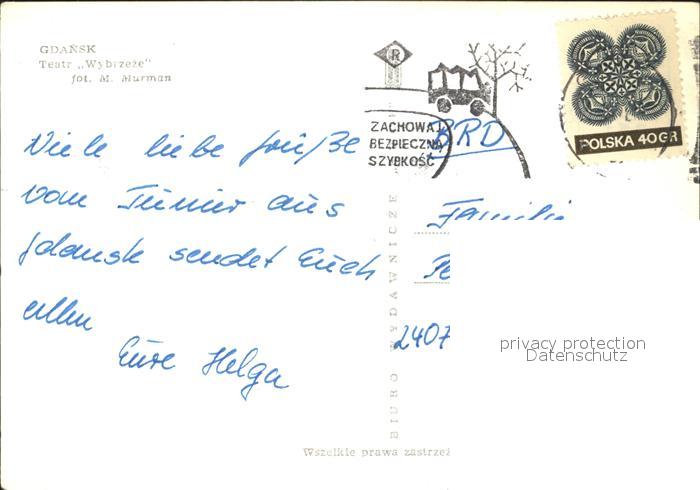 GDAŃSK
Teatr „Wybrzeże"
fot. M. Murman
R
ZACHOWAJ
BEZPIECZNĄ
SZYBKOŚĆ
POLSKA 40 GR
Viele liebe Grüße
vom Turnier aus
Gdansk sendet Euch
allen
Eure Helga
BRD
Familie
Pe
2407
privacy protection
Datenschutz
BIURO WYDAWNICZE
Wszelkie prawa zastrzeż